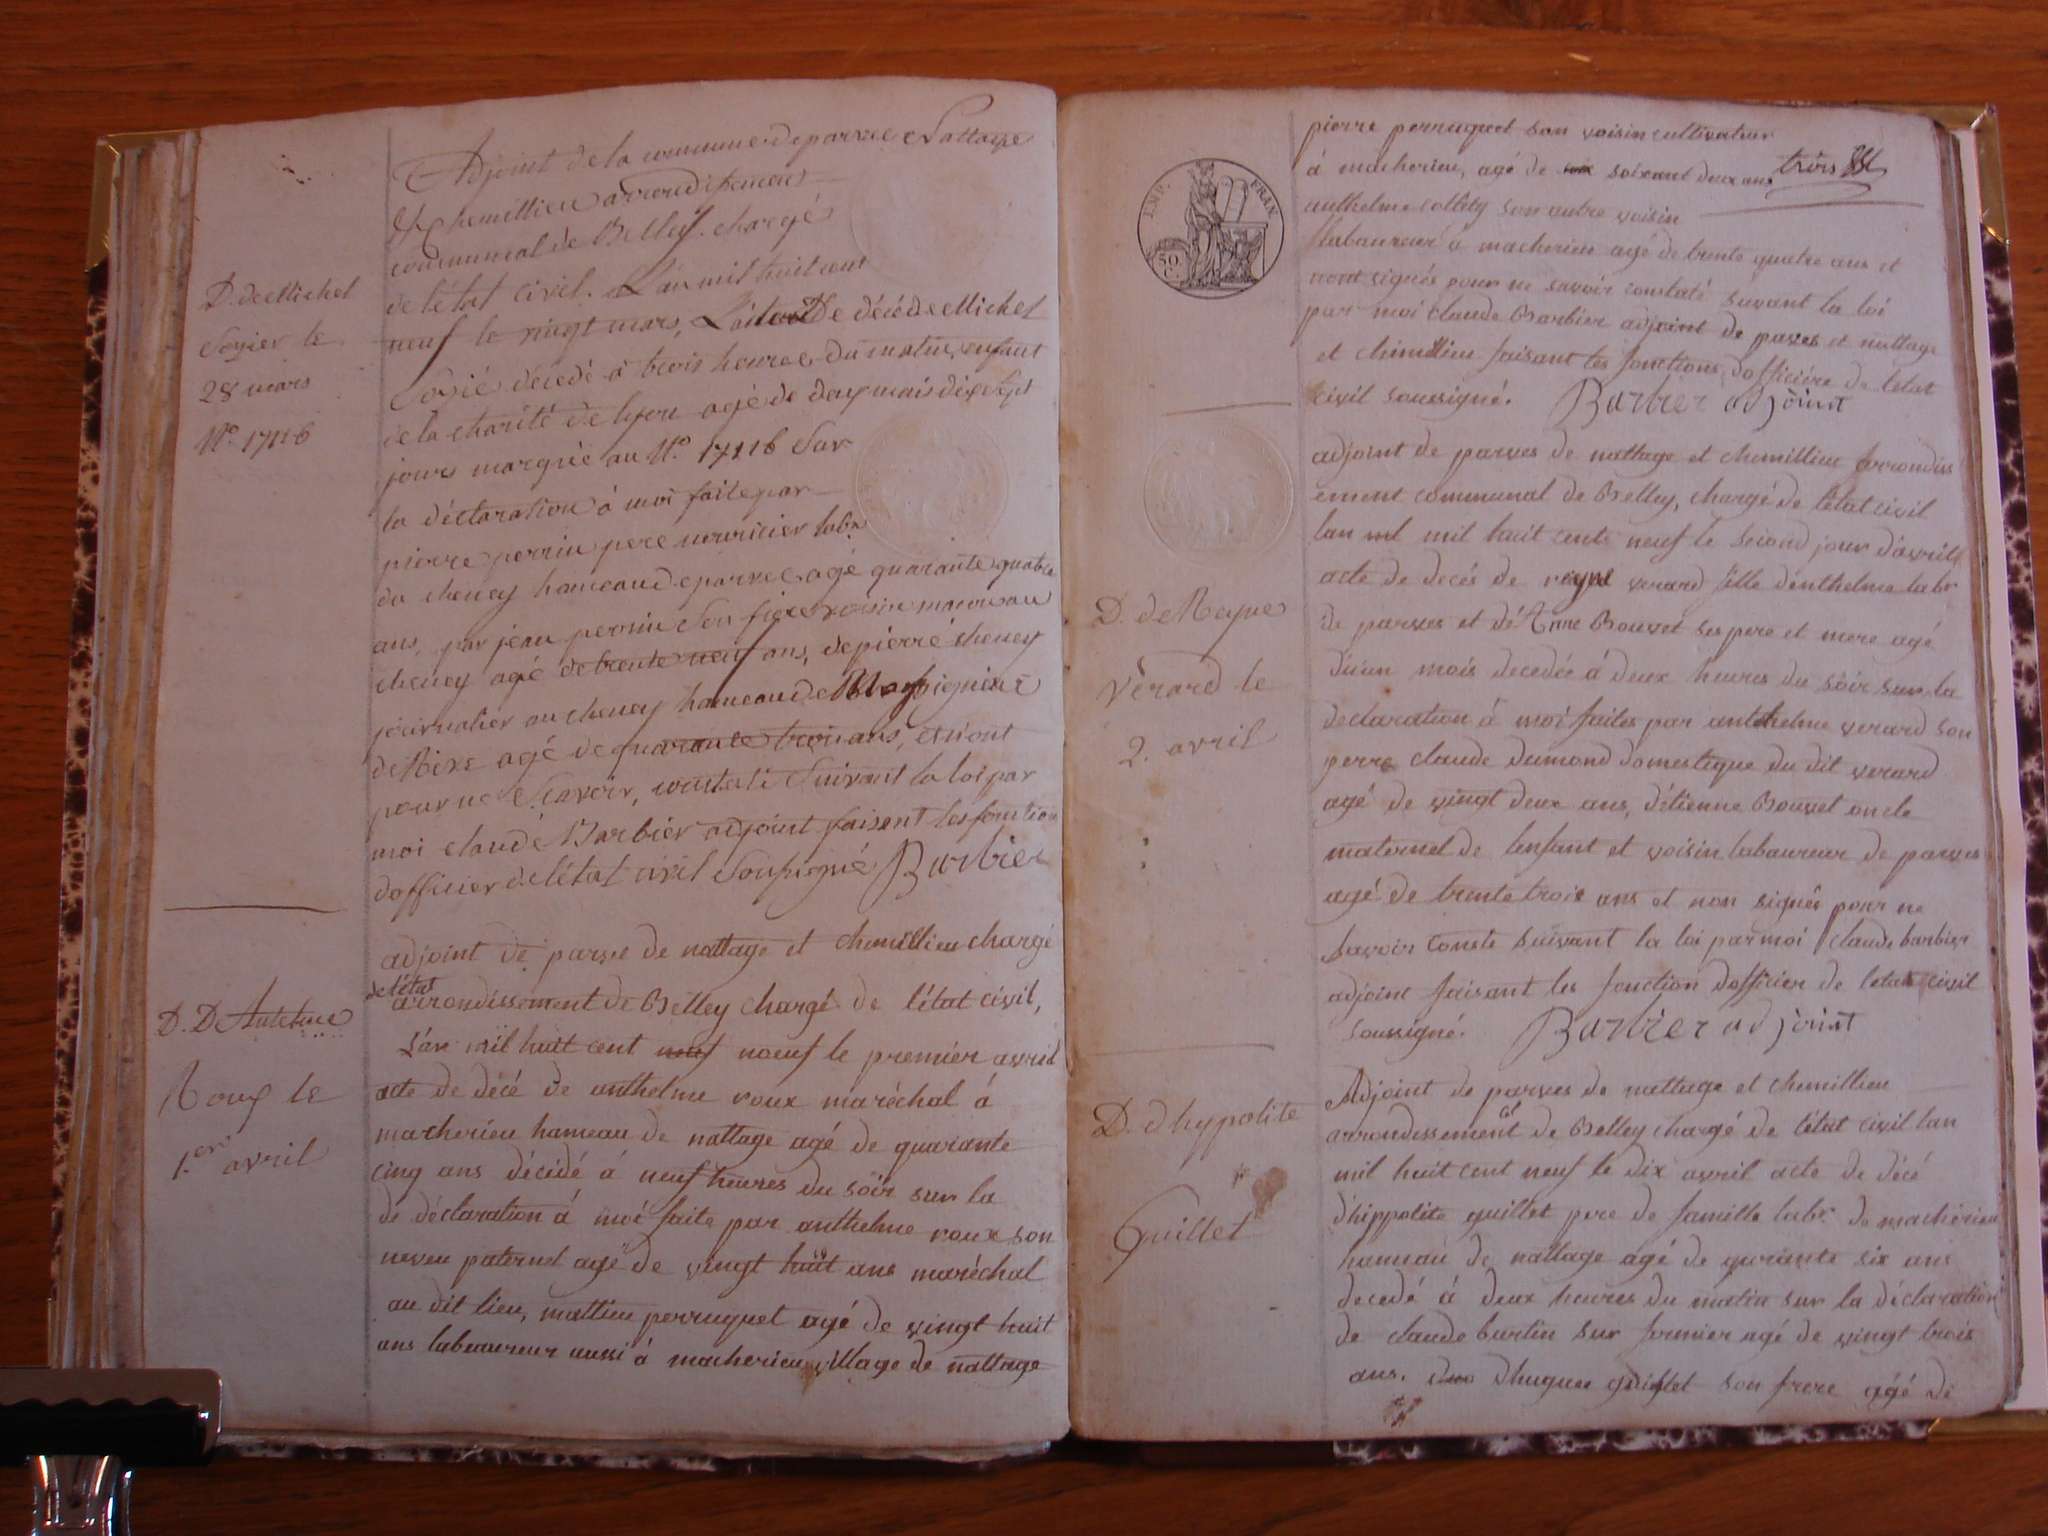 Adjoint de la commune de parves Nattage
& Chemillieu arrondissement
communal de Belley. chargé
de létat civil. L'an mil huit cent
neuf le vingt mars, Lacte De décé de Michel
décedé à trois heures du matin, enfant
de la charité de lyon agé de deux mois dix sept
jours marquée au N.o 17116 Sur
la déclaration à moi faite par
pierre perrin pere nourricier labr
du cheney hameau de parves agé quarante quatre
ans, par jean perrin Son frere voisin au
cheney agé de trente neuf ans, de pierre cheney
journalier au cheney hameau de
agé de quarante trois ans, et n'ont
pour ne Scavoir, constaté Suivant la loi par
moi claude Barbier adjoint faisent les fonction
dofficier de létat civil Soussigné Barbier
D. de Michel
le
28 mars
N.o 17116
adjoint de parve de nattage et chemillieu chargé
de létat
arrondissement de Belley chargé de létat civil,
L'an mil huit cent neuf nœuf le premier avril
acte de décé de anthelme roux maréchal á
macherieu hameau de nattage agé de quarante
cinq ans décédé á neuf heures du soir sur la
de déclaration á moi faite par anthelme roux son
neveu paternel agé de vingt huit ans maréchal
au dit lieu, mattieu perruquet agé de vingt huit
ans laboureur aussi á macherieu village de nattage
D. D Antelme
Roux le
1.er avril
pierre perruquet son voisin cultivateur
á macherieu, agé de six soixant deux ans
trois
anthelme collety son autre voisin
laboureur á macherieu agé de trente quatre ans et
nont signés pour ne savoir constaté suvant la loi
par moi claude Barbier adjoint de parves et nattage
et chimillieu faisant les fonctions dofficiére de létat
civil soussigné. Barbier adjoint
IMP. FRAN.
50
C.
adjoint de parves de nattage et chemillieu arrondiss
ement communal de Belley, chargé de létat civil
lan mil mil huit cents neuf le second jour davrill
acte de decés de reyne verard fille denthelme labr
de parves et dé Anne Bouvet ses pere et mere agé
dún mois decedée á deux heures du sóir sur la
declaration á moi faites par antthelme verard son
perre claude dumond domestique du dit verard
agé de vingt deux ans, détienne Bouvet oncle
maternel de lenfant et voisin laboureur de parves
agé de trente trois ans et non signés pour ne
savoir consté suivant la loi par moi claude barbier
adjoint faisant les fonction dofficier de létat civil
soussigné. Barbier adjoint
D. de Reyne
Vérard le
2. avril
Adjoint de parves de nattage et chemillieu
arrondissement cal de Belley chargé de létat civil lan
mil huit cent neuf le dix avril acte de décé
dhippolite guillet pere de famille labr. de macherieu
hameau de nattage agé de quarante six ans
decedé á deux heures du matin sur la déclaration
de claude burtin sur fermier agé de vingt trois
ans. dhugues guillet son frere agé de
D. dhyppolite
Guillet